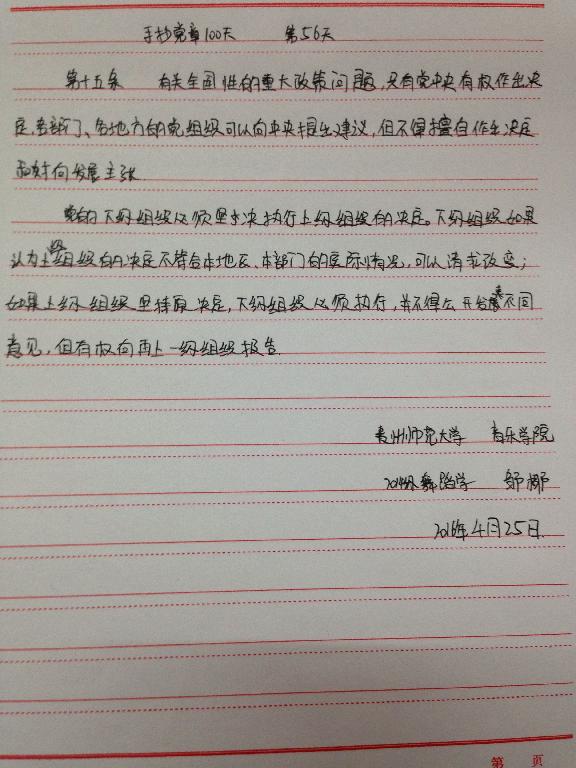 手抄党章100天 第56天
第十五条 有关全国性的重大政策问题，只有党中央有权作出决
定，各部门、各地方的党组织可以向中央提出建议，但不得擅自作出决定
和对外发表主张.
党的下级组织必须坚决执行上级组织的决定。下级组织如果
认为上级组织的决定不符合本地区、本部门的实际情况，可以请求改变；
如果上级组织坚持原决定，下级组织必须执行，并不得公开发表不同
意见，但有权向再上一级组织报告.
贵州师范大学 音乐学院
2014级舞蹈学 邹娜
2016年4月25日.
第 页